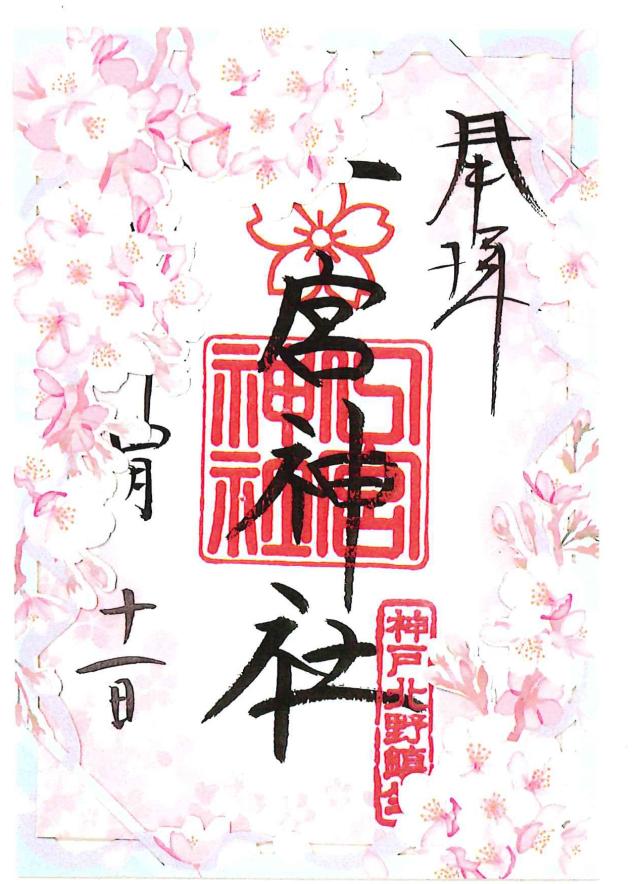 奉拝
一宮神社
宮
神社
神戸北野鎮
月十一日